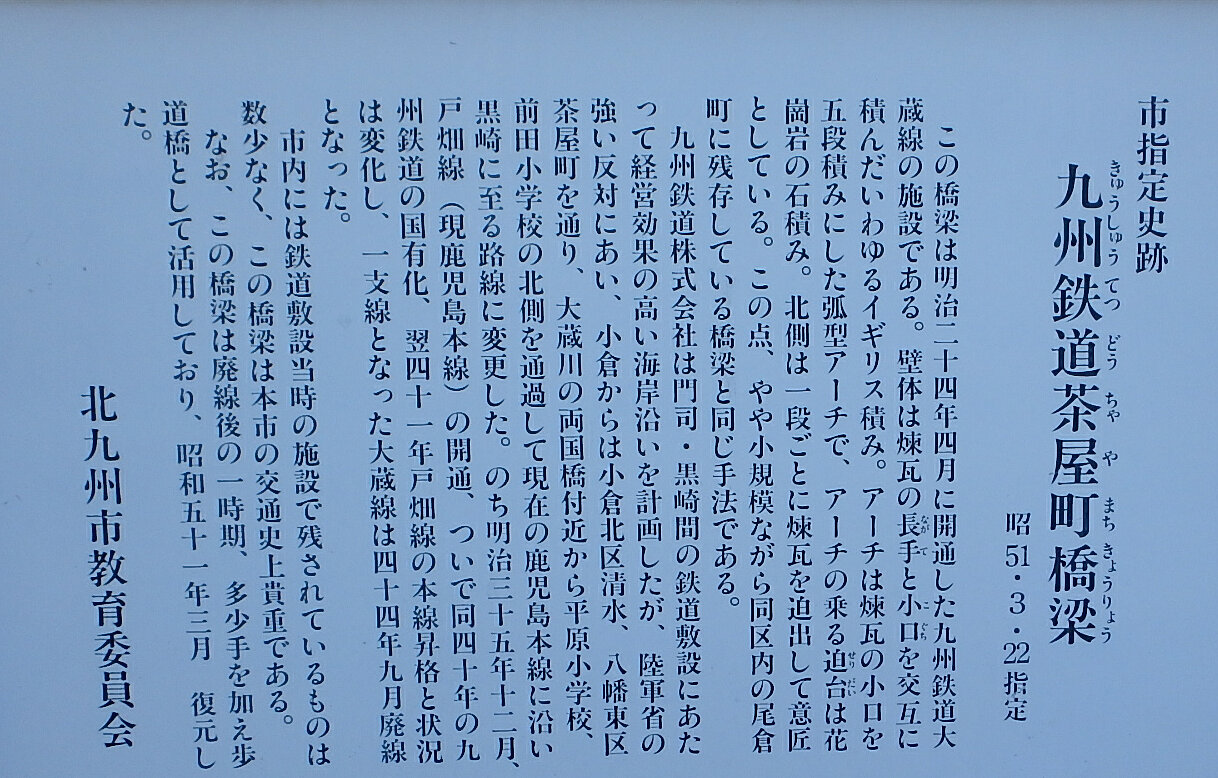 市指定史跡
九州鉄道茶屋町橋梁
きゅうしゅうてつどうちゃやまちきょうりょう
昭51・3・22指定
この橋梁は明治二十四年四月に開通した九州鉄道大
蔵線の施設である。壁体は煉瓦の長手と小口を交互に
ながて こぐち
積んだいわゆるイギリス積み。アーチは煉瓦の小口を
五段積みにした弧型アーチで、アーチの乗る迫台は花
せりだい
崗岩の石積み。北側は一段ごとに煉瓦を迫出して意匠
としている。この点、やや小規模ながら同区内の尾倉
町に残存している橋梁と同じ手法である。
九州鉄道株式会社は門司・黒崎間の鉄道敷設にあた
って経営効果の高い海岸沿いを計画したが、陸軍省の
強い反対にあい、小倉からは小倉北区清水、八幡東区
茶屋町を通り、大蔵川の両国橋付近から平原小学校、
前田小学校の北側を通過して現在の鹿児島本線に沿い
黒崎に至る路線に変更した。のち明治三十五年十二月、
戸畑線（現鹿児島本線）の開通、ついで同四十年の九
州鉄道の国有化、翌四十一年戸畑線の本線昇格と状況
は変化し、一支線となった大蔵線は四十四年九月廃線
となった。
市内には鉄道敷設当時の施設で残されているものは
数少なく、この橋梁は本市の交通史上貴重である。
なお、この橋梁は廃線後の一時期、多少手を加え歩
道橋として活用しており、昭和五十一年三月 復元し
た。
北九州市教育委員会